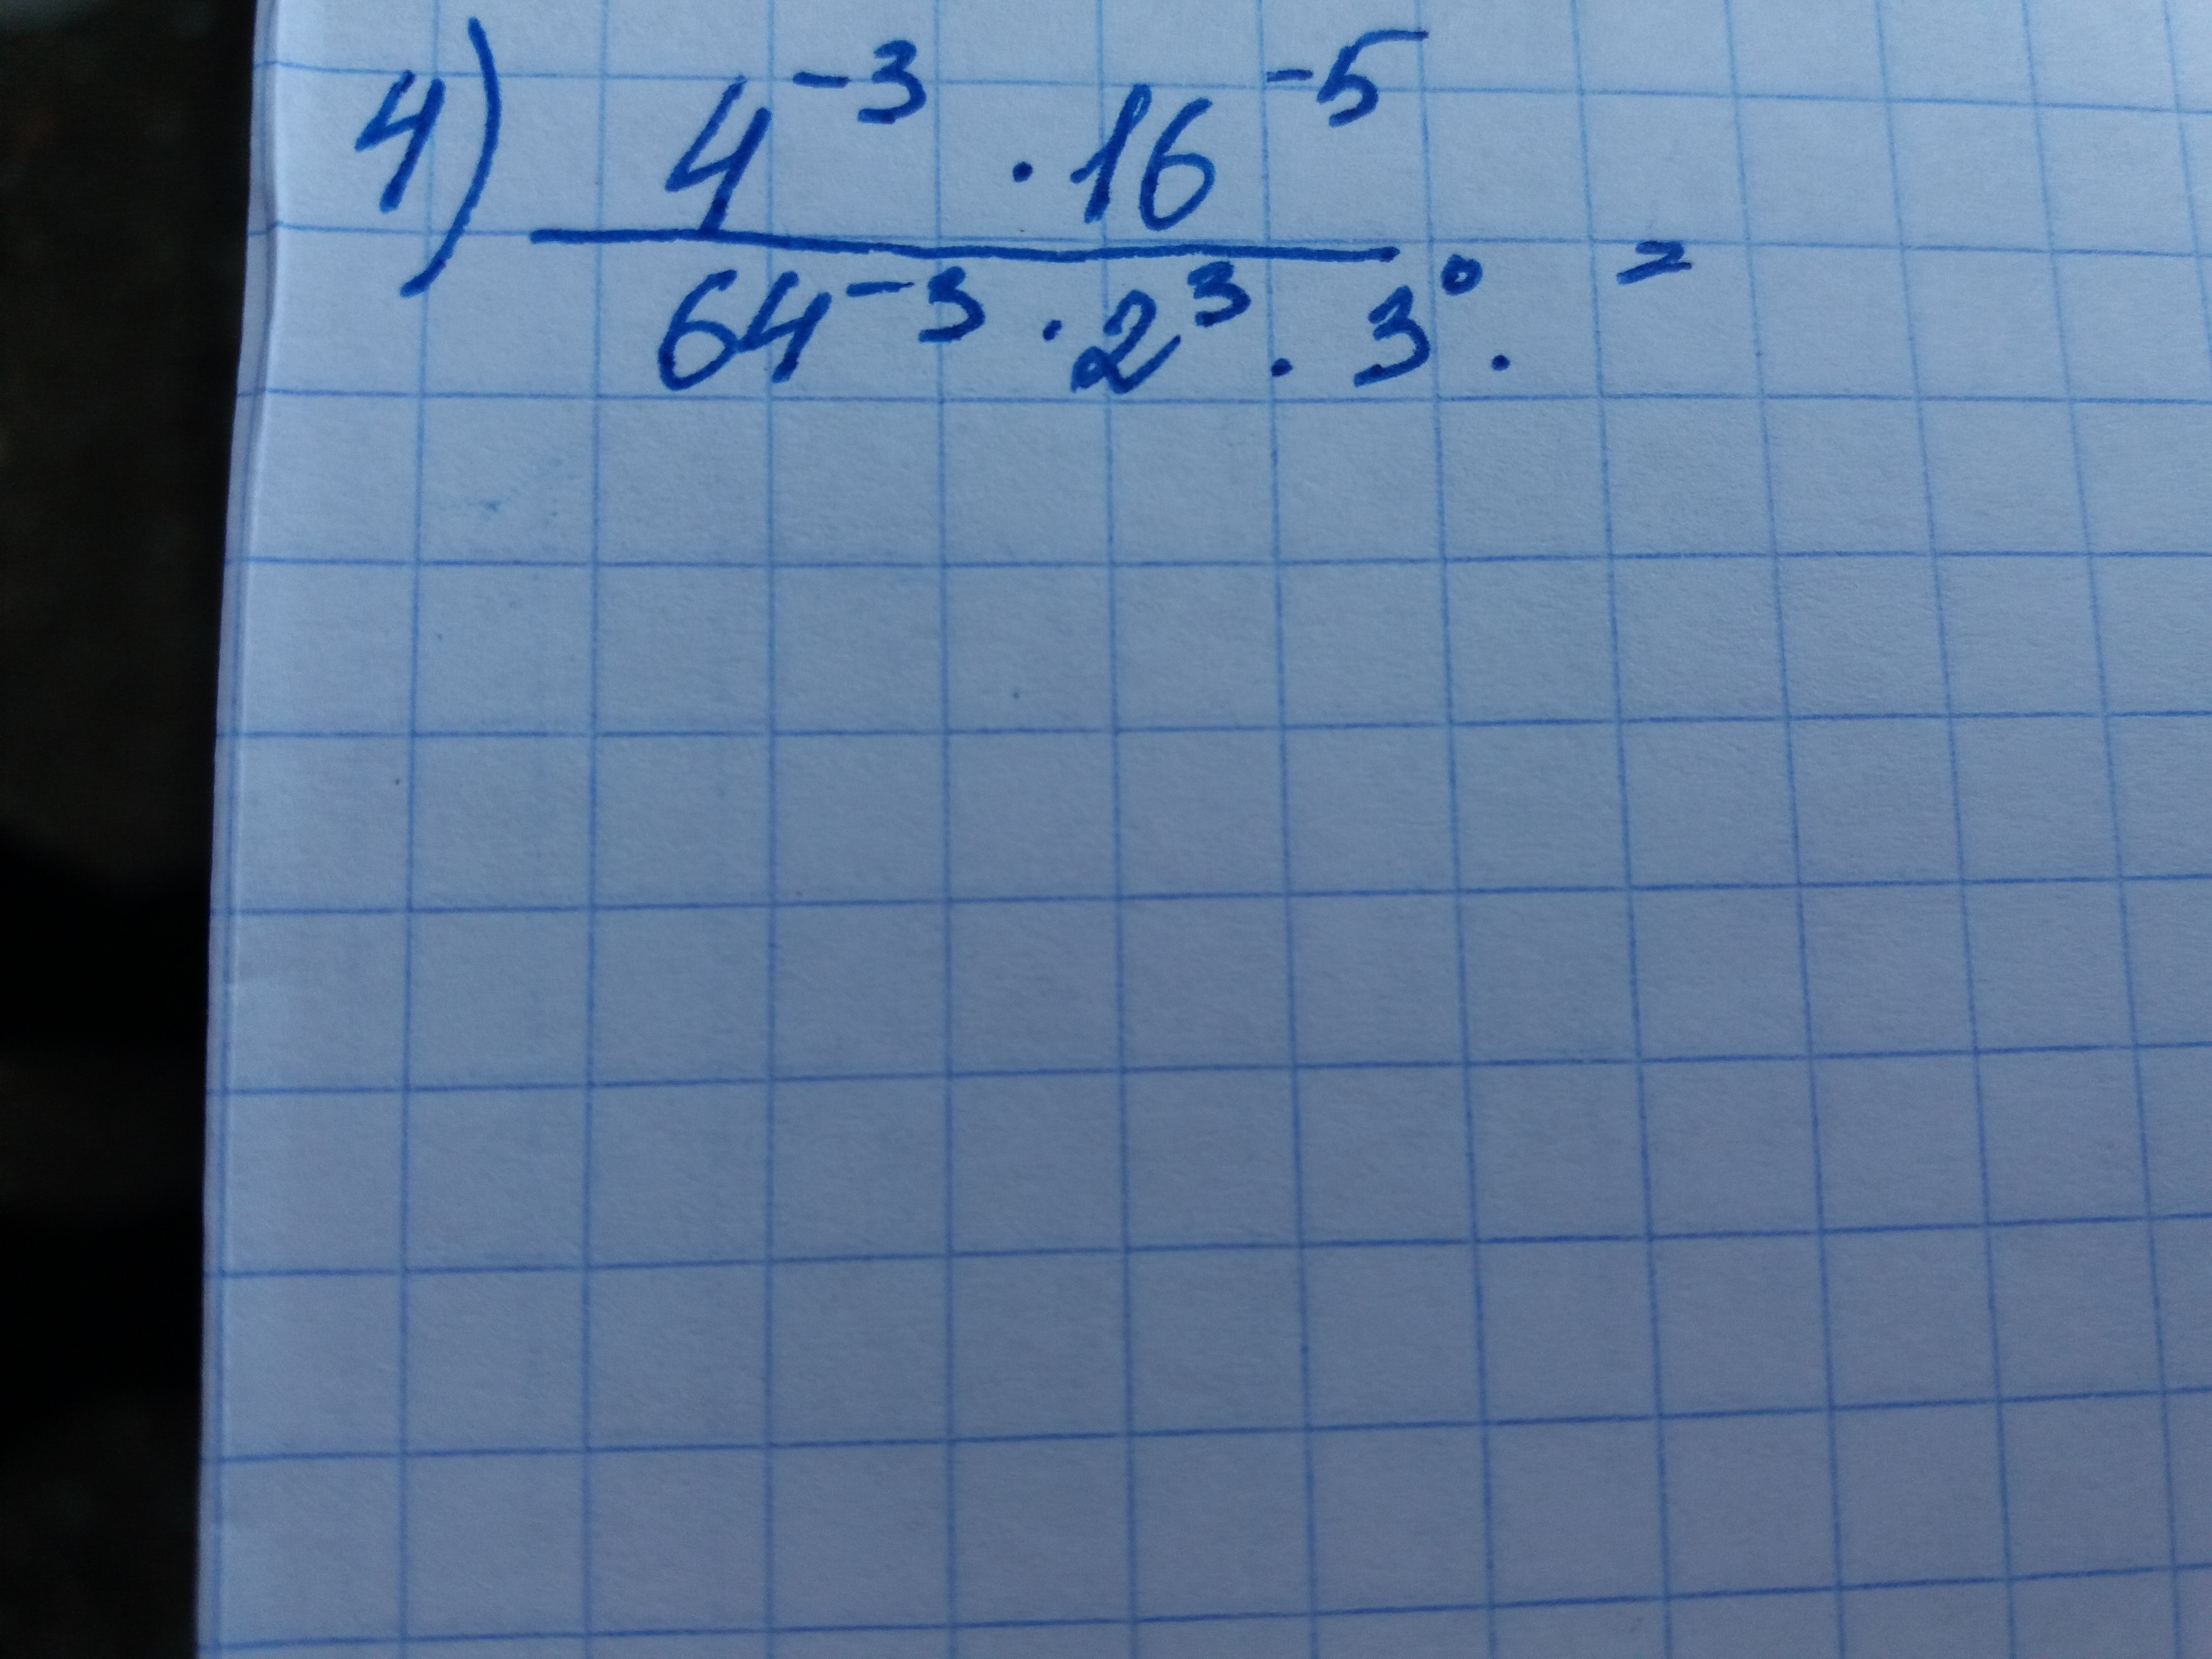 4) 4⁻³ · 16⁻⁵
64⁻³ · 2³ · 3⁰ . =